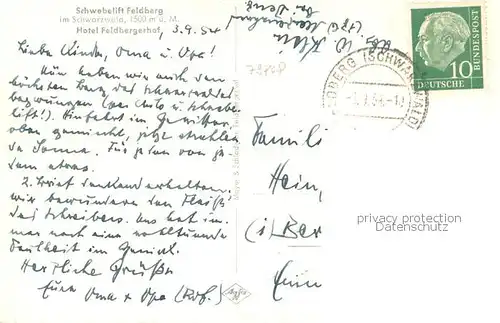 Schwebelift Feldberg
im Schwarzwald, 1500 m ü. M.
Hotel Feldbergerhof, 3.9.54
Liebe Kinder, Oma u. Opa!
Nun haben wir auch den
höchsten Berg des Schwarzwaldes
bezwungen (per Auto u. Schwebe-
lift!). Hinfahrt im Gewitter,
oben gemischt, jetzt strahlende
Sonne. Für jeden von je-
dem etwas.
2. Brief dankend erhalten.
Wir bewundern den Fleiß
des Schreibers. Uns hat im-
mer noch eine wohltuende
Faulheit im Genick.
Herzliche Grüße
Eure Oma + Opa
Familie
Hein,
(1) Ber
DEUTSCHE
BUNDESPOST
10
FELDBERG (SCHWARZWALD)
privacy protection
Datenschutz